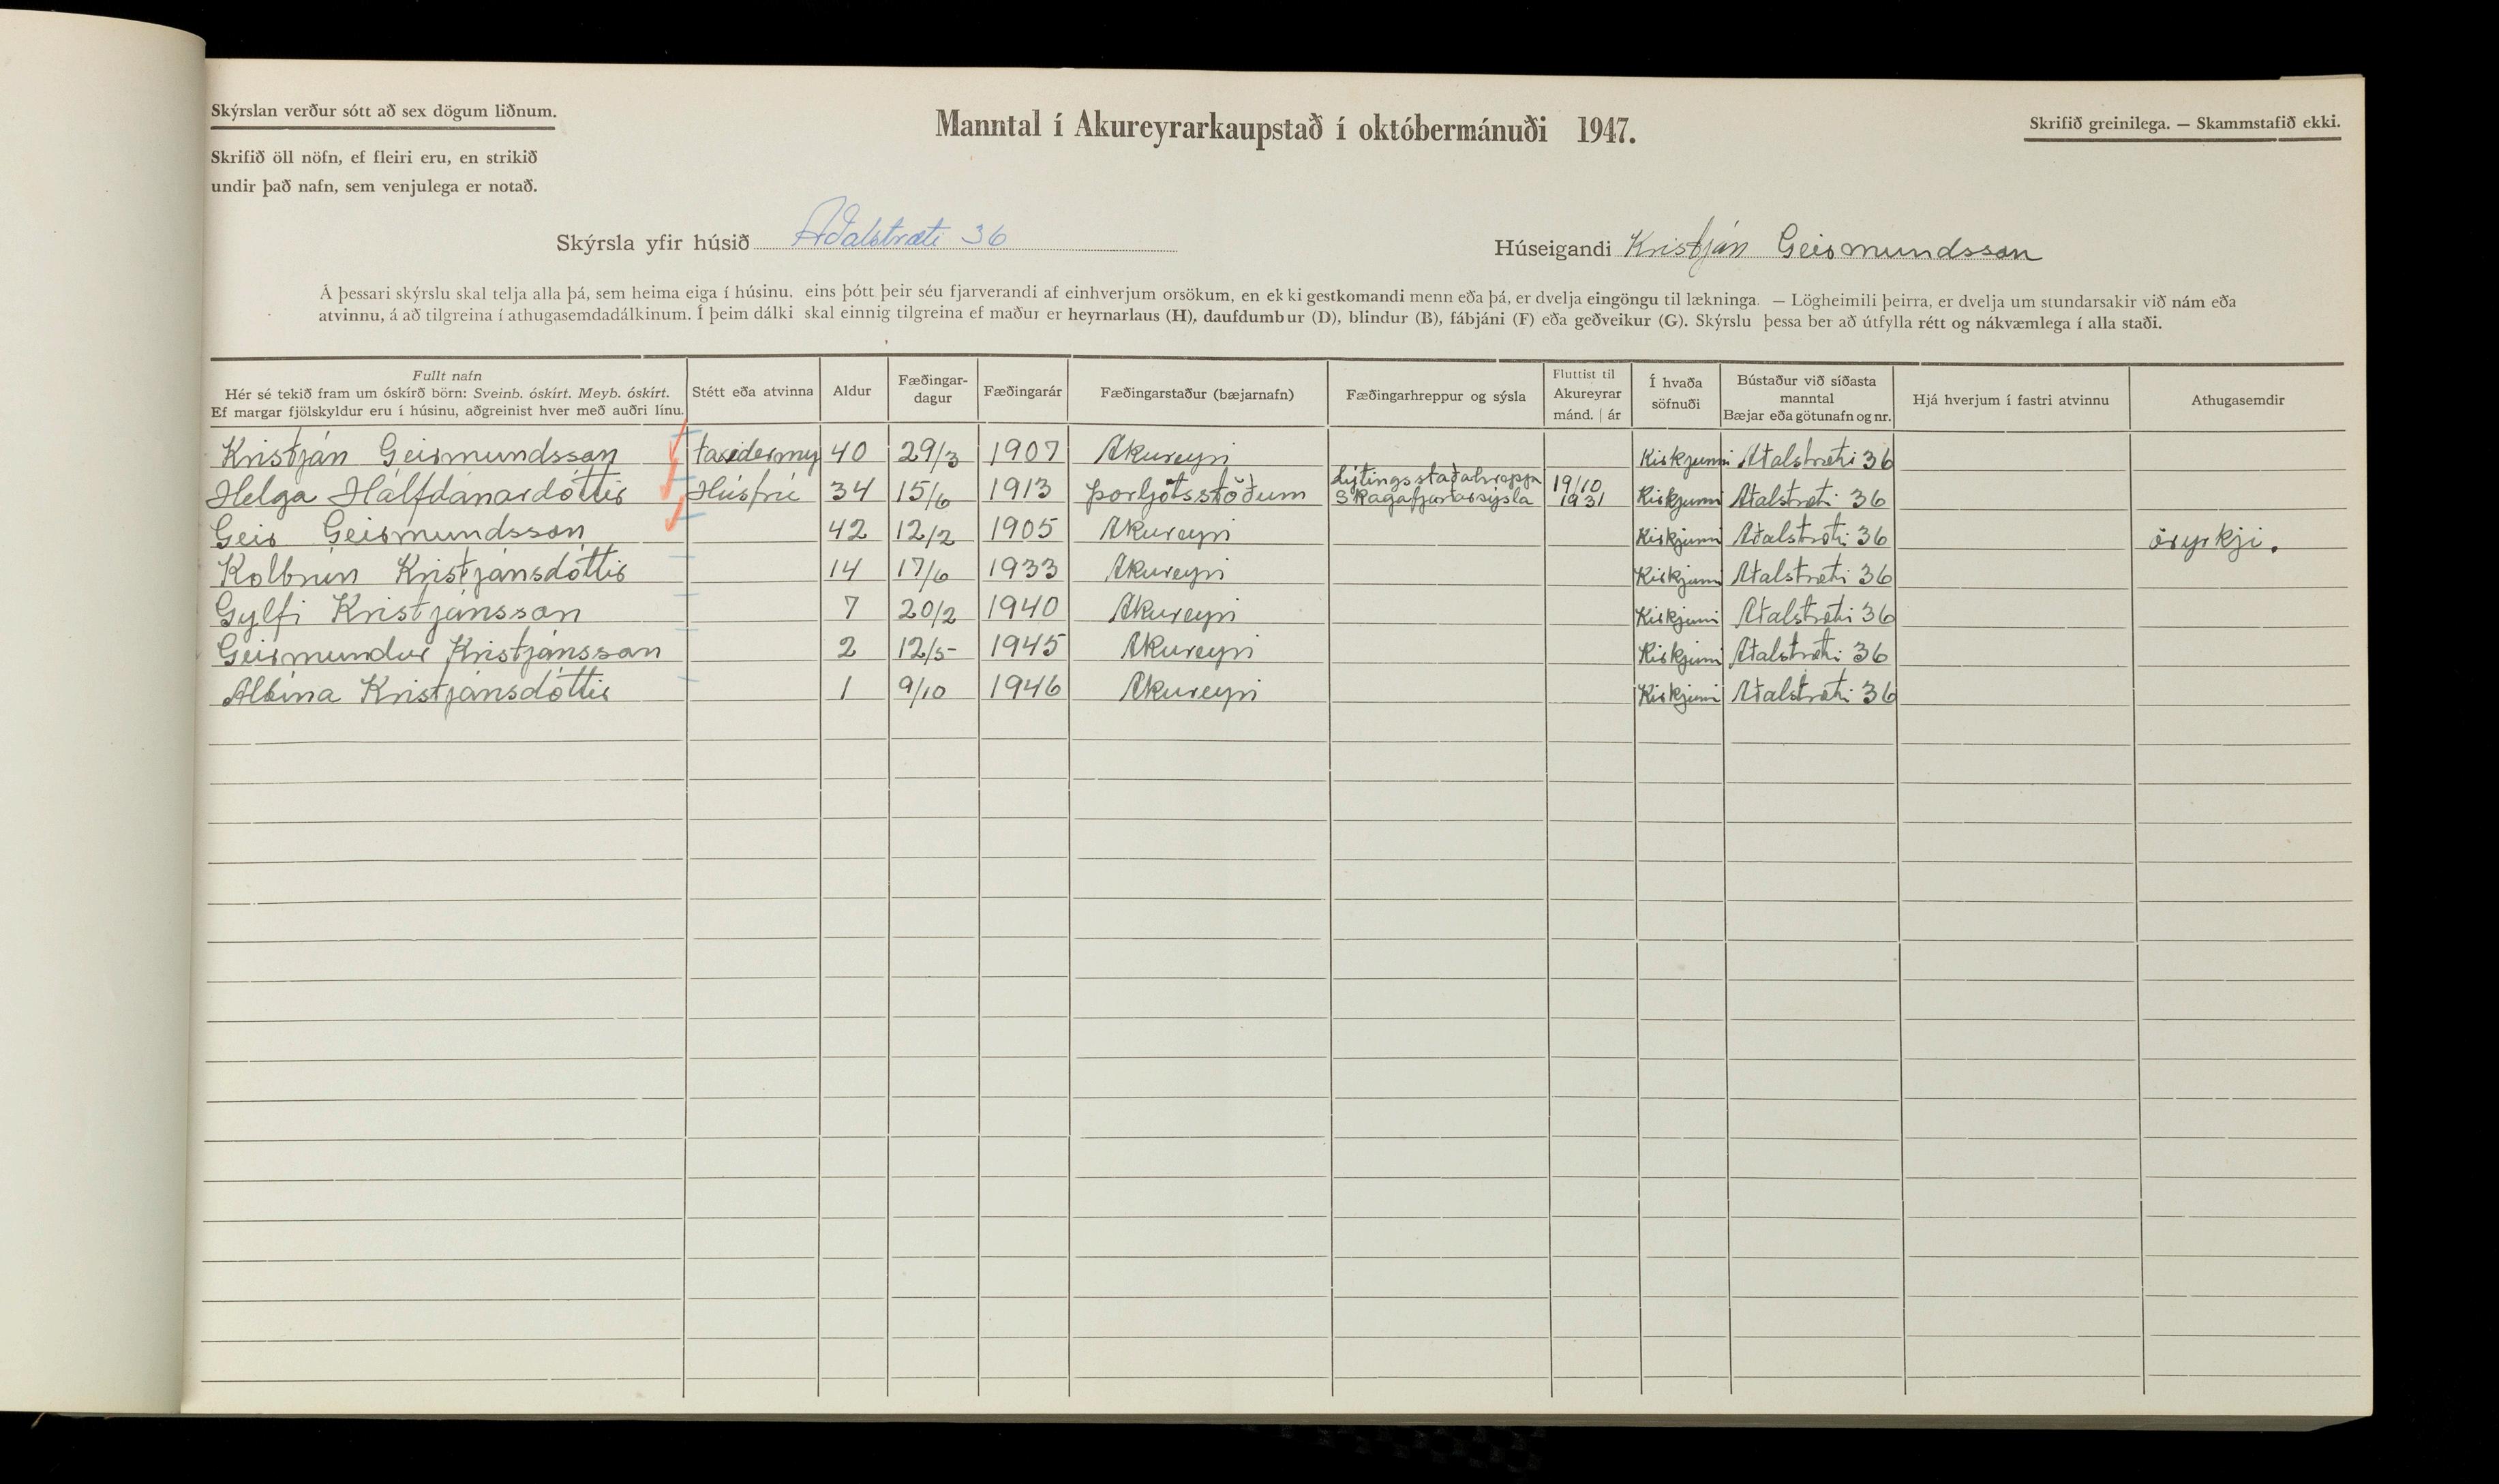 Skýrslan verður sótt að sex dögum liðnum.
Skrifið öll nöfn, ef fleiri eru, en strikið
undir það nafn, sem venjulega er notað.
Manntal í Akureyrarkaupstað í októbermánuði 1947.
Skrifið greinilega. — Skammstafið ekki.
Skýrsla yfir húsið Aðalstræti 36
Húseigandi Kristján Geirmundsson
Á þessari skýrslu skal telja alla þá, sem heima eiga í húsinu, eins þótt þeir séu fjarverandi af einhverjum orsökum, en ekki gestkomandi menn eða þá, er dvelja eingöngu til lækninga. — Lögheimili þeirra, er dvelja um stundarsakir við nám eða
atvinnu, á að tilgreina í athugasemdadálkinum. Í þeim dálki skal einnig tilgreina ef maður er heyrnarlaus (H), daufdumbur (D), blindur (B), fábjáni (F) eða geðveikur (G). Skýrslu þessa ber að útfylla rétt og nákvæmlega í alla staði.
Fullt nafn
Hér sé tekið fram um óskírð börn: Sveinb. óskírt. Meyb. óskírt.
Ef margar fjölskyldur eru í húsinu, aðgreinist hver með auðri línu.
Stétt eða atvinna
Aldur
Fæðingar-
dagur
Fæðingarár
Fæðingarstaður (bæjarnafn)
Fæðingarhreppur og sýsla
Fluttist til
Akureyrar
mánd. | ár
Í hvaða
söfnuði
Bústaður við síðasta
manntal
Bæjar eða götunafn og nr.
Hjá hverjum í fastri atvinnu
Athugasemdir
Kristján Geirmundsson taxidermy 40 29/3 1907 Akureyri Kirkjunni Aðalstræti 36
Helga Hálfdánardóttir Húsfrú 34 15/6 1913 Þorljótsstöðum Lýtingsstaðahreppi Skagafjarðarsýsla 19/10 1931 Kirkjunni Aðalstræti 36
Geir Geirmundsson 42 12/2 1905 Akureyri Kirkjunni Aðalstræti 36 öryrkji.
Kolbrún Kristjánsdóttir 14 17/6 1933 Akureyri Kirkjunni Aðalstræti 36
Gylfi Kristjánsson 7 20/2 1940 Akureyri Kirkjunni Aðalstræti 36
Geirmundur Kristjánsson 2 12/5- 1945 Akureyri Kirkjunni Aðalstræti 36
Albína Kristjánsdóttir 1 9/10 1946 Akureyri Kirkjunni Aðalstræti 36